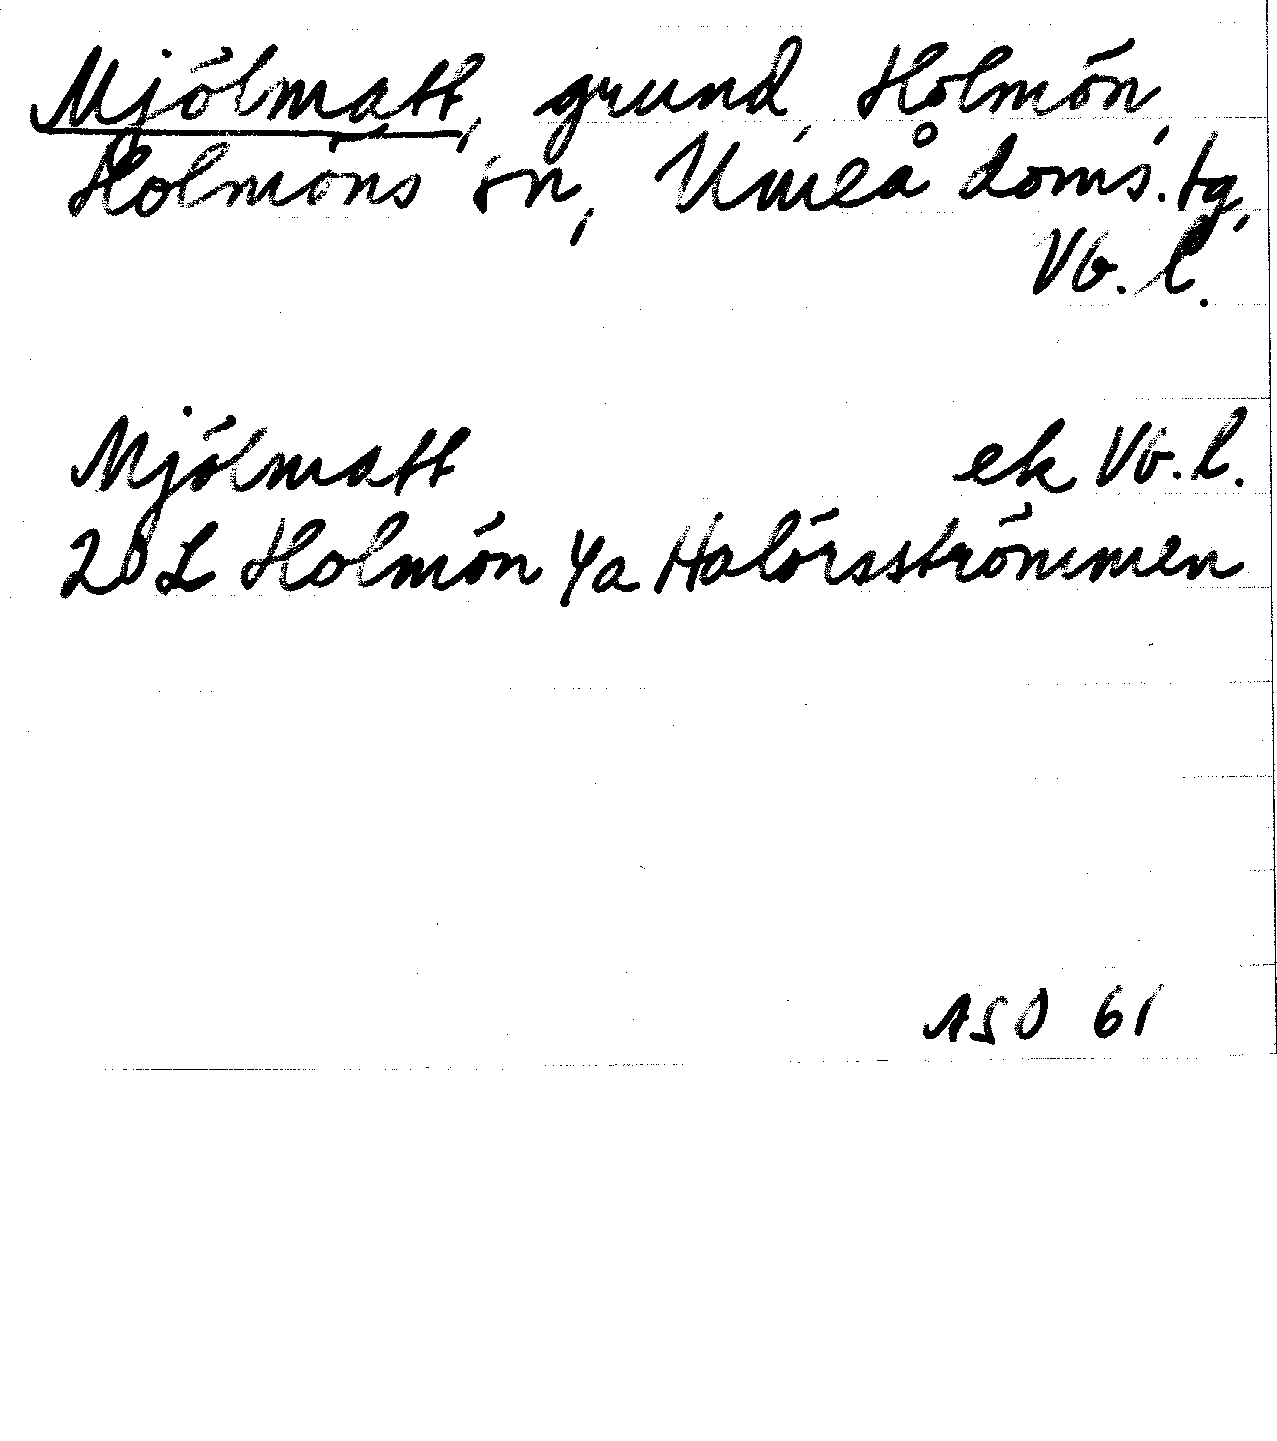 Mjölmatt, grund, Holmön,
Holmöns sn, Umeå doms. tg,
Vb. l.
Mjölmatt ek Vb. l.
20 L Holmön Ya Halörsströmmen
ASO 61